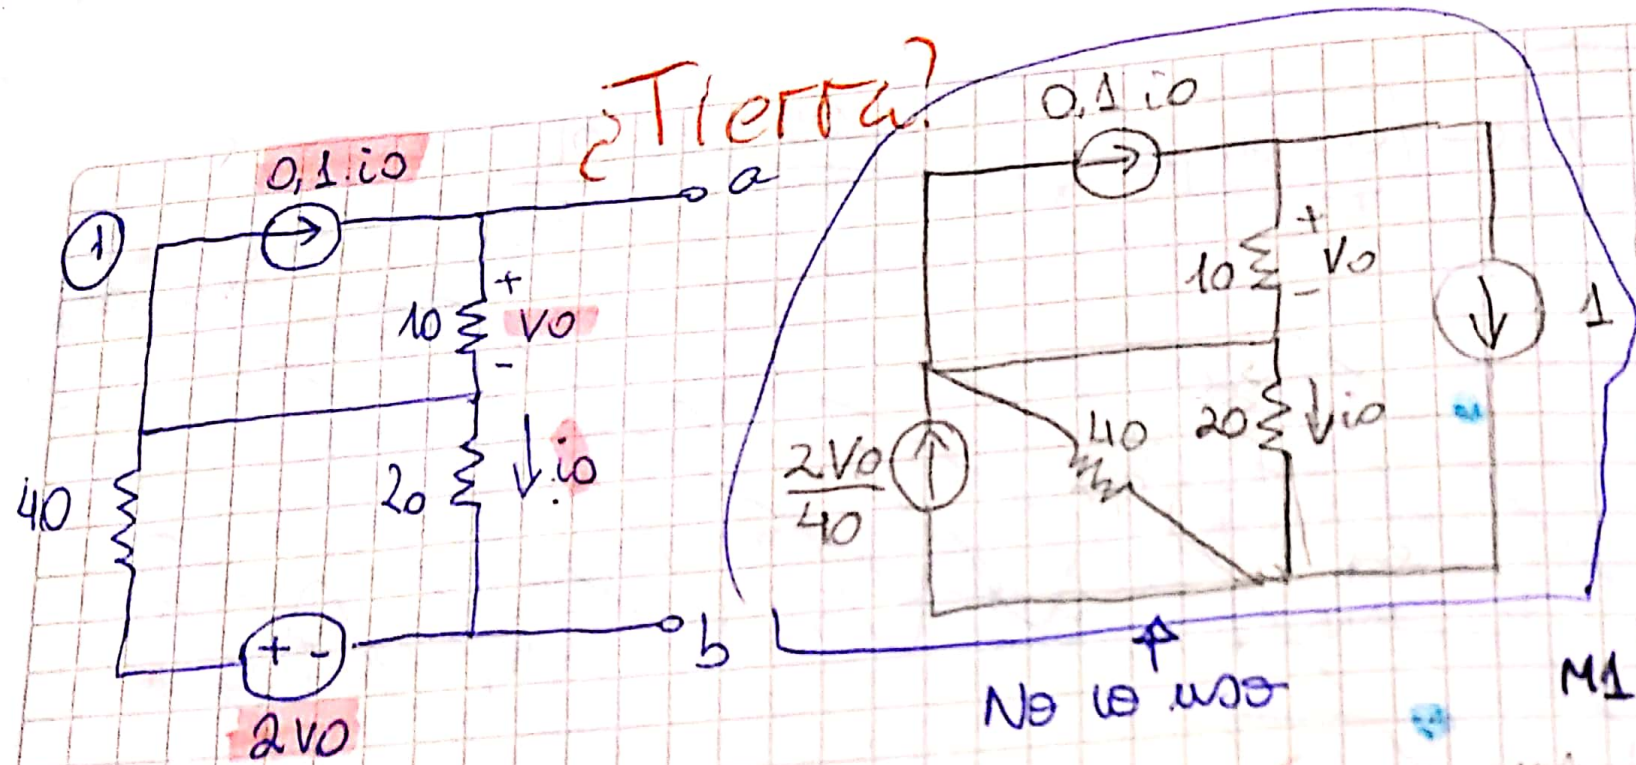 ¿Tierra?
1
0,1.io
a
+
10
vo
-
40
20
io
+ -
2vo
b
0,1 io
+
10
vo
-
1
2vo
40
40
20
io
No lo uso
M1